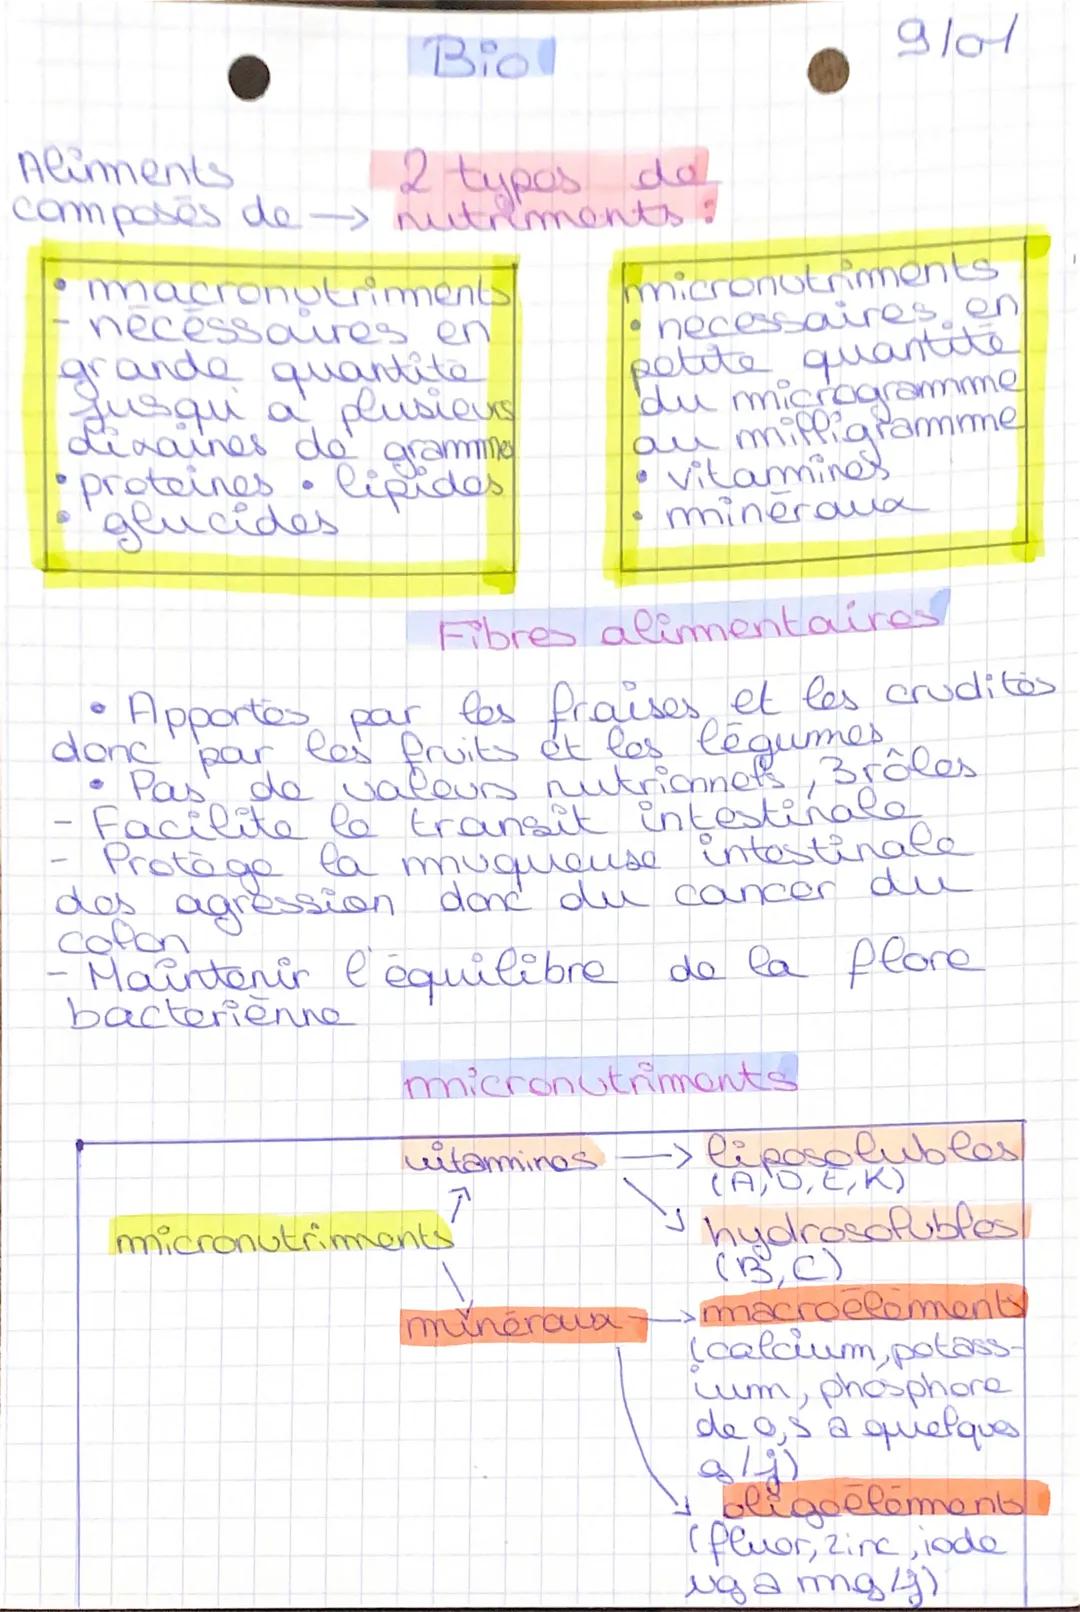 Bio
9/01
Aliments
composés de → 2 types de
nutriments :
• macronutriments
- nécéssaires en
grande quantité
jusqu'a plusieurs
dizaines de gramme
• proteines • lipides
• glucides
micronutriments
• necessaires en
petite quantité
du microgramme
au milligramme
• vitamines
• minéraux
Fibres alimentaires
• Apportés par les fraises et les crudités
donc par les fruits et les légumes
• Pas de valeurs nutrionnels, 3 rôles
- Facilite le transit intestinale
- Protège la muqueuse intestinale
des agression donc du cancer du
colon
- Maintenir l'équilibre de la flore
bacteriènne
micronutriments
vitamines → liposolubles
(A, D, E, K)
micronutriments
hydrosolubles
(B, C)
minéraux → macroéléments
(calcium, potass-
ium, phosphore
de 0,5 a quelques
g/j)
oligoéléments
(fluor, zinc, iode
ug a mg/j)